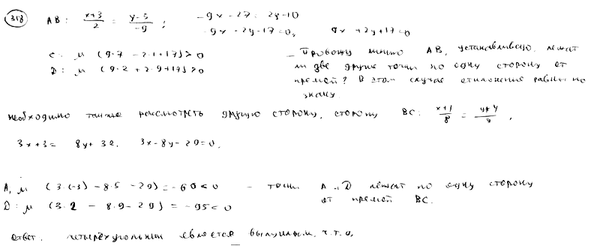 358 AB: x+3/2 = y-5/-9 -9x-27=2y-10
-9x-2y-17=0, 9x+2y+17=0
C: м (9·7-2·1+17)>0 Провожу линию AB, устанавливаю, лежат
D: м (9·2+2·9+17)>0 ли две другие точки по одну сторону от
прямой? В этом случае отклонения равны по
знаку
необходимо также рассмотреть другую сторону, сторону BC: x+1/8 = y+4/,
3x+3= 8y+32. 3x-8y-29=0.
A: м (3·(-3) -8·5 -29) = <0 - точки A и D лежат по одну сторону
D: м (3·2 -8·9-29) = -95<0 от прямой BC.
ответ. четырёхугольник является выпуклым, ч.т.д.